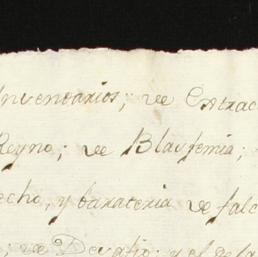 Inventarios; ve Extrac
Reyno; ve Blasfemia;
echo, y barateria ve falc
ve Devatio; y el de la